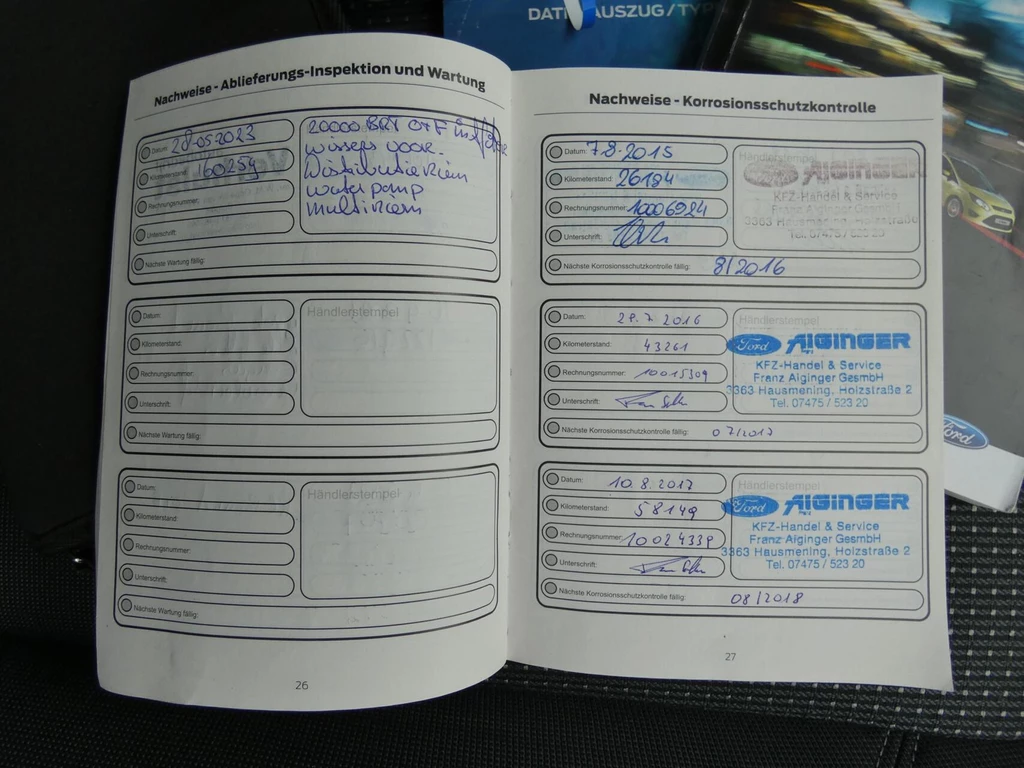 DATENAUSZUG/TYP
Nachweise - Ablieferungs-Inspektion und Wartung
Datum: 28-05-2023
Kilometerstand: 160254
Rechnungsnummer:
Unterschrift:
Nächste Wartung fällig:
20000 BRT O+F
wissers voor.
Distributieriem
waterpomp
multiriem
Datum:
Kilometerstand:
Rechnungsnummer:
Unterschrift:
Nächste Wartung fällig:
Händlerstempel
Datum:
Kilometerstand:
Rechnungsnummer:
Unterschrift:
Nächste Wartung fällig:
Händlerstempel
26
Nachweise - Korrosionsschutzkontrolle
Datum: 7.8.2015
Kilometerstand: 26184
Rechnungsnummer: 10006984
Unterschrift:
Nächste Korrosionsschutzkontrolle fällig: 8/2016
Händlerstempel
Ford AIGINGER
KFZ-Handel & Service
Franz Aiginger GesmbH
3363 Hausmening, Holzstraße
Tel. 07475 / 523 20
Datum: 29.7.2016
Kilometerstand: 43261
Rechnungsnummer: 10015309
Unterschrift:
Nächste Korrosionsschutzkontrolle fällig: 07/2017
Händlerstempel
Ford AIGINGER
KFZ-Handel & Service
Franz Aiginger GesmbH
3363 Hausmening, Holzstraße 2
Tel. 07475 / 523 20
Datum: 10.8.2017
Kilometerstand: 58149
Rechnungsnummer: 10024339
Unterschrift:
Nächste Korrosionsschutzkontrolle fällig: 08/2018
Händlerstempel
Ford AIGINGER
KFZ-Handel & Service
Franz Aiginger GesmbH
3363 Hausmening, Holzstraße 2
Tel. 07475 / 523 20
27
Ford